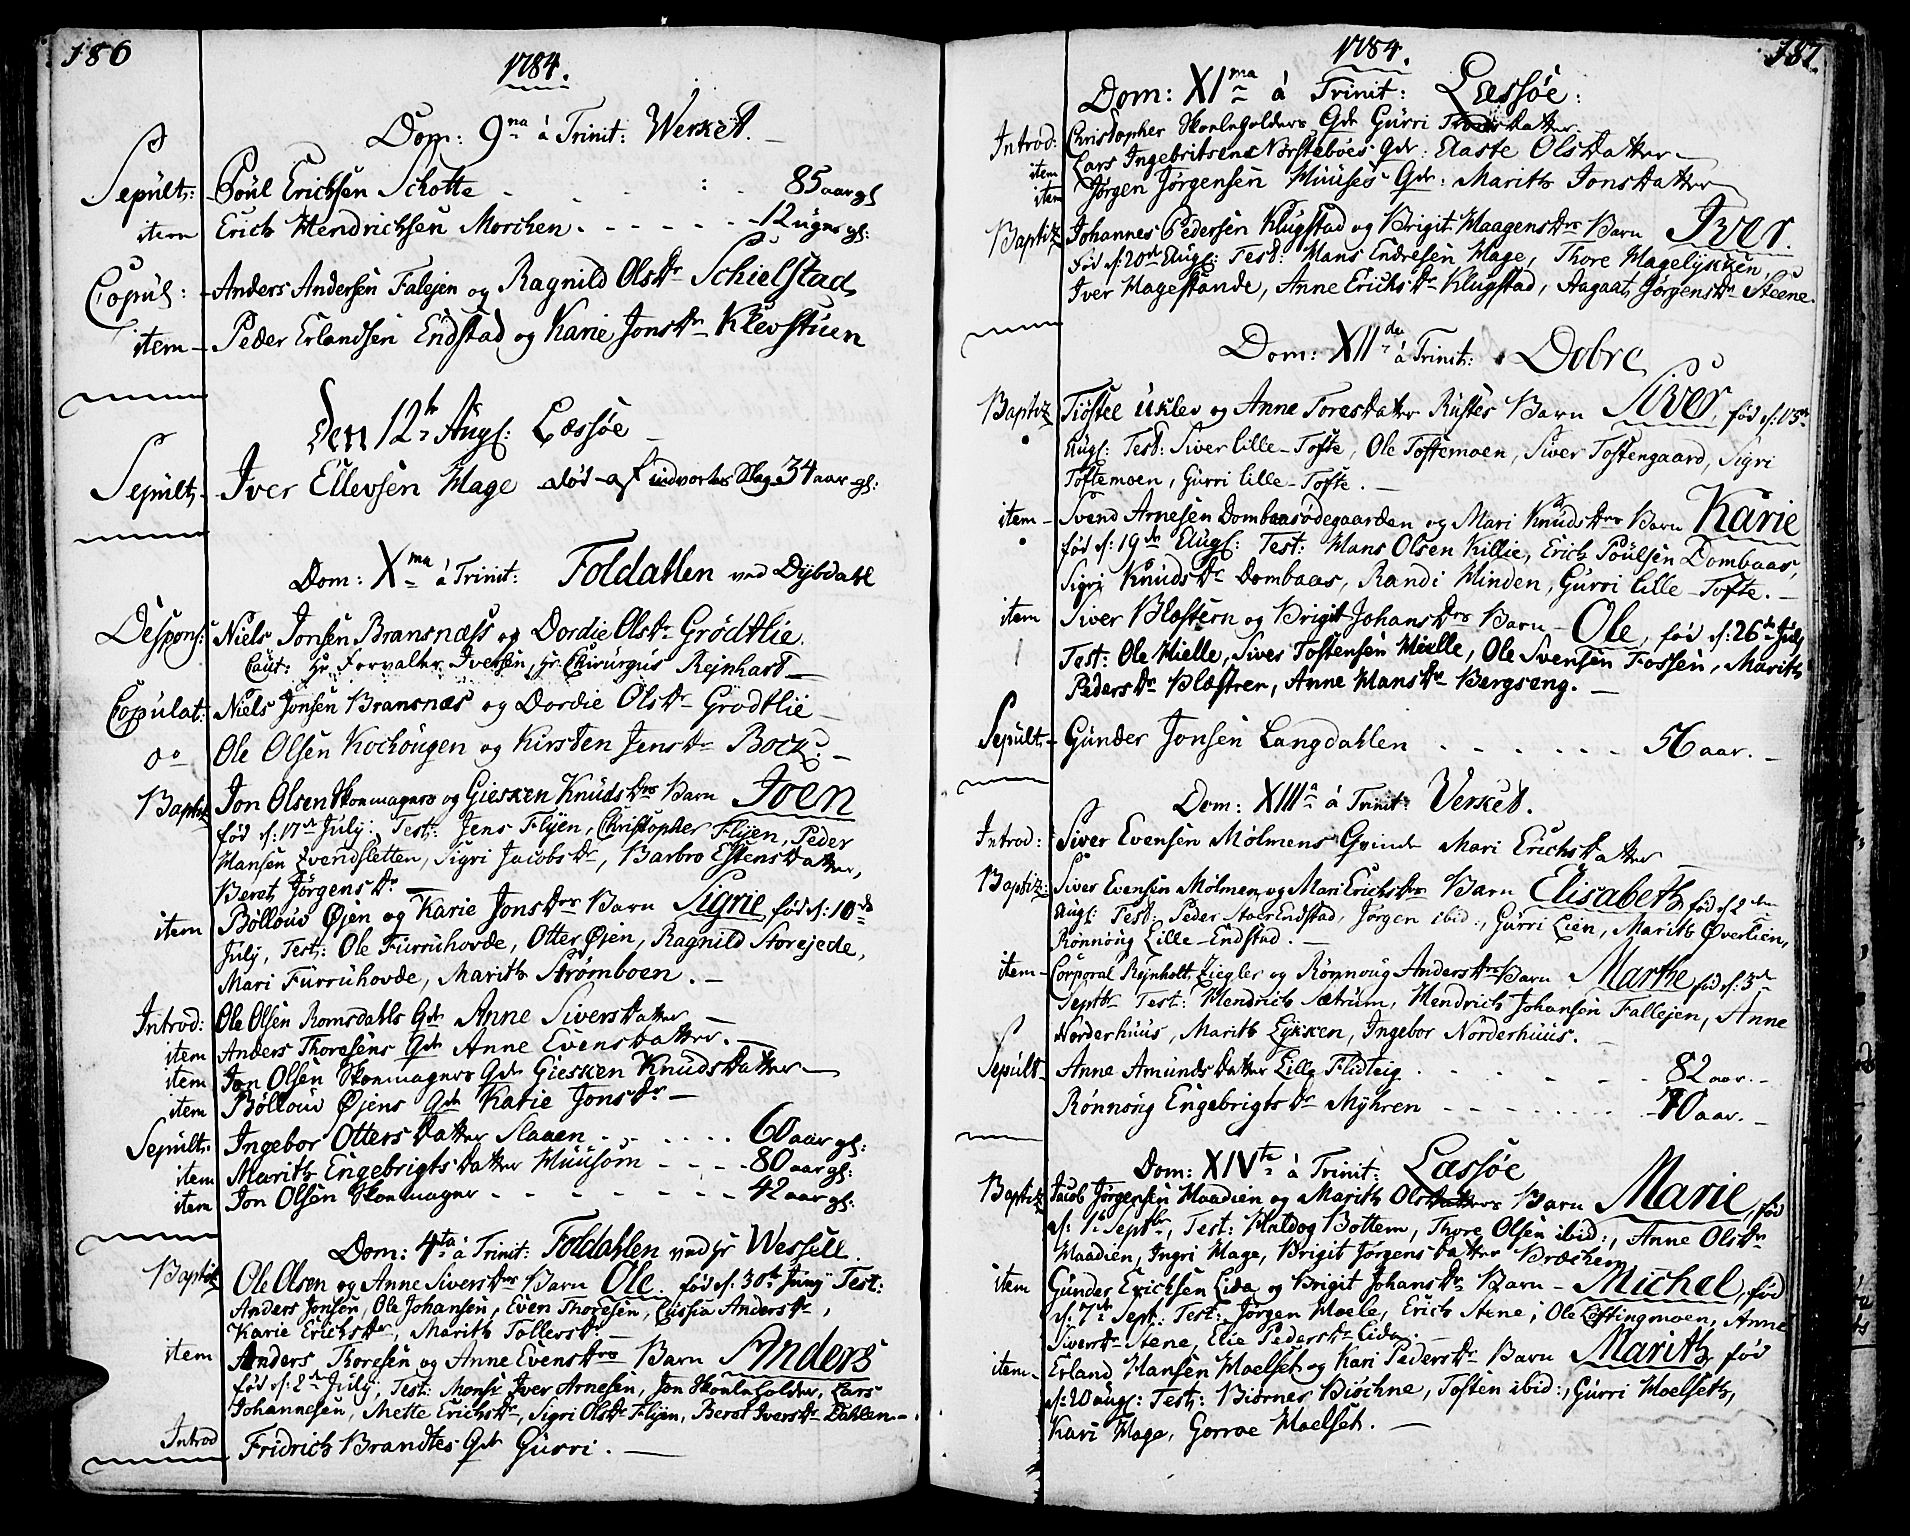 186
1784.
Dom: 9na á Trinit: Werket.
Sepult: Poül Erichsen Schotte - - : - 85 aar gl
item Erich Hendrichsen Morchen - - - - - 12 uger gl:
Copul: Anders Andersen Falejen og Ragnild Olsdr Schielstad
item Peder Erlandsen Endstad og Karie Jonsdr Klevstuen
den 12te Augl: Læssøe
Sepult, Iver Ellevsen Hage død af indvortes Slag 34 aar gl:
Dom: Xma á Trinit: Foldahlen ved Dybdahl
Despons: Niels Jonsen Bransness og Dordie Olsdr Grödtlie
Caut: hr Forvalter Iversen, hr Chirurgus Rejnhard
Copulat: Niels Jonsen Bransnæs og Dordie Olsdr Grodtlie
do Ole Olsen Kochougen og Kirsten Jensdr Bock.
Baptiz Jon Olsen Skomagers og Giesken Knudsdrs Barn Joen
fød d: 17de July: Test: Jens Flyen, Christopher Flyen, Peder
Hansen Evensletten, Sigri Jacobsdr, Barbro Estensdatter,
Beret Jörgensdr
item Böllouv Öjen og Karie Jonsdrs Barn Sigrie fød d: 10de
July, Test: Ole Fürruhovde, Otter Öjen, Ragnild Storejede,
Mari Fürruhovde, Marith Strömboen.
Introd: Ole Olsen Romsdahls Qde Anne Siversdatter
item Anders Thoresens Qde Anne Evensdatter.
item Jon Olsen Skomagers Qde Giesken Knudsdatter
item Böllouv Öjens Qde Karie Jonsdr
Sepult: Ingebor Ottersdatter Slaaen - - - - 60 aar gl:
item Marith Engebrigtsdatter Hüüsom - - - 80 aar gl:
item Jon Olsen Skomager - - - - - - 42 aar gl:
Dom: 4ta á Trinit: Foldahlen ved hr Wessell.
Baptiz Ole Olsen og Anne Siversdrs Barn Ole fød d: 30te Juny Test:
Anders Jonsen, Ole Johansen, Even Thoresen, Lussia Andersdr,
Karie Erichsdr, Marith Tollersdr
item Anders Thoresen og Anne Evensdrs Barn Anders
fød d: 2de July, Test: Monsr Iver Arnesen, Jon Skoleholder, Lars
Johannesen, Mette Erichsdr, Sigri Olsdr Flyen, Beret Iversdr Dahlen
Introd Fridrich Brandtes Qde Gurri.
187.
1784.
Dom: XIma á Trinit: Læssøe:
Introd: Christopher Skoleholders Qde Gurri datter
item Lars Ingebritsens Norstebóes Qde: Aaste Olsdatter
item Jörgen Jörgensen Hüüses Qde: Marith Jonsdatter
Baptiz Johannes Pedersen Klugstad og Brigit Haagensdrs Barn Iver.
fød d: 20de Augl: Test: Hans Endresen Hage, Thore Hagelykken,
Iver Hagestande, Anne Erichsdr Klugstad, Aagaat Jörgensdr Steene.
Dom: XIIde á Trinit: Dobre
Baptiz Tiöstel Uklev og Anne Toresdatter Rustes Barn Siver, fød d: 13de
Augl: Test: Siver Lille-Tofte, Ole Toftemoen, Siver Toftengaard, Sigri
Toftemoen, Gurri Lille-Tofte.
item Svend Arnesen Dombaasödegaarden og Mari Knudsdrs Barn Karie
fød d: 19de Augl: Test: Hans Olsen Killie, Erich Poulsen Dombaas,
Sigri Knudsdr Dombaas, Randi Hinden, Gurri Lille-Tofte.
item Siver Blæstern og Brigit Johansdrs Barn Ole, fød d: 26de July
Test: Ole Hielle, Siver Tostensen Hielle, Ole Svensen Fossen, Marith
Pedersdr Blæstren, Anne Hansdr Bergseng.
Sepult: Gunder Jonsen Langdahlen - - - - - - 56 aar.
Dom: XIIIa á Trinit: Verket.
Introd: Siver Evensen Mölmens Qvinde Mari Erichsdatter
Baptiz: Siver Evensen Mölmen og Mari Erichsdrs Barn Elisabeth fød d 2den
Augl: Test: Peder Stoer Endstad, Jörgen ibid:, Gurri Lien, Marith Överlien,
Rönnöug Lille-Endstad.
item Corporal Rejnholt Ziegler og Rönnoug Andersdrs Barn Marthe fød d: 3de
Septbr Test: Hendrich Sætrum, Hendrich Johansen Fallejen, Anne
Norderhuus, Marith Lykken, Ingebor Norderhuus.
Sepult Anne Amundsdatter Lille Flidteig - - - - - - 82 aar.
Rönnöug Engebrigtsdr Myhren - - - - - - - 70 aar.
Dom: XIVte á Trinit: Læssøe
Baptiz Jacob Jörgensen Haadien og Marith Olsdatters Barn Marie, fød
d: 1te Septbr, Test: Haldog Bottem, Thore Olsen ibid:, Anne Olsdr
Haadien, Ingri Hage, Brigit Jörgensdatter Bræcheim
item Gunder Erichsen Lida og Brigit Johansdr Barn Michel, fød
d: 7de Sept. Test: Jörgen Hoele, Erich Stene, Ole Löftingmoen, Anne
Siversdr Stene, Elie Pedersdr Lida.
item Erland Hansen Moelset og Kari Pedersdr Barn Marith, fød
d: 20 augl: Test: Biörner Biöchne, Tosten ibid:, Gurri Moelseth,
Kari Hage, Gorroe Moelset.